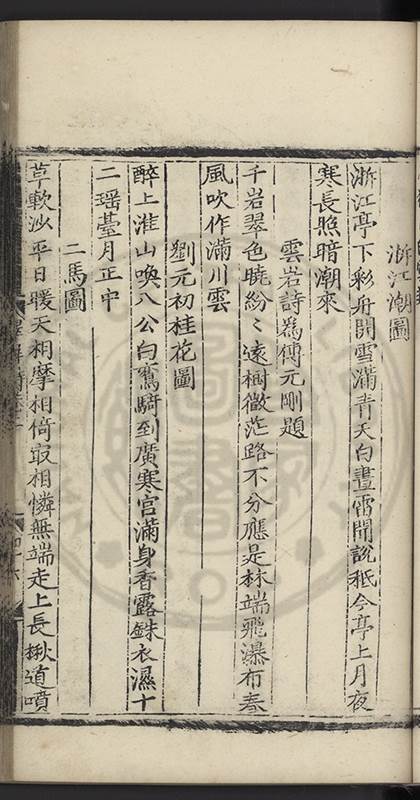 浙江潮圖
浙江亭下彩舟開雪滿青天白晝雷聞說秖今亭上月夜
寒長照暗潮來
雲岩詩為傅元剛題
千岩翠色曉紛〻遠樹微茫路不分應是林端飛瀑布春
風吹作滿川雲
劉元初桂花圖
醉上淮山喚八公白鸞騎到廣寒宮滿身香露銖衣濕十
二瑤臺月正中
二馬圖
草軟沙平日暖天相摩相倚㝡相憐無端走上長楸道噴